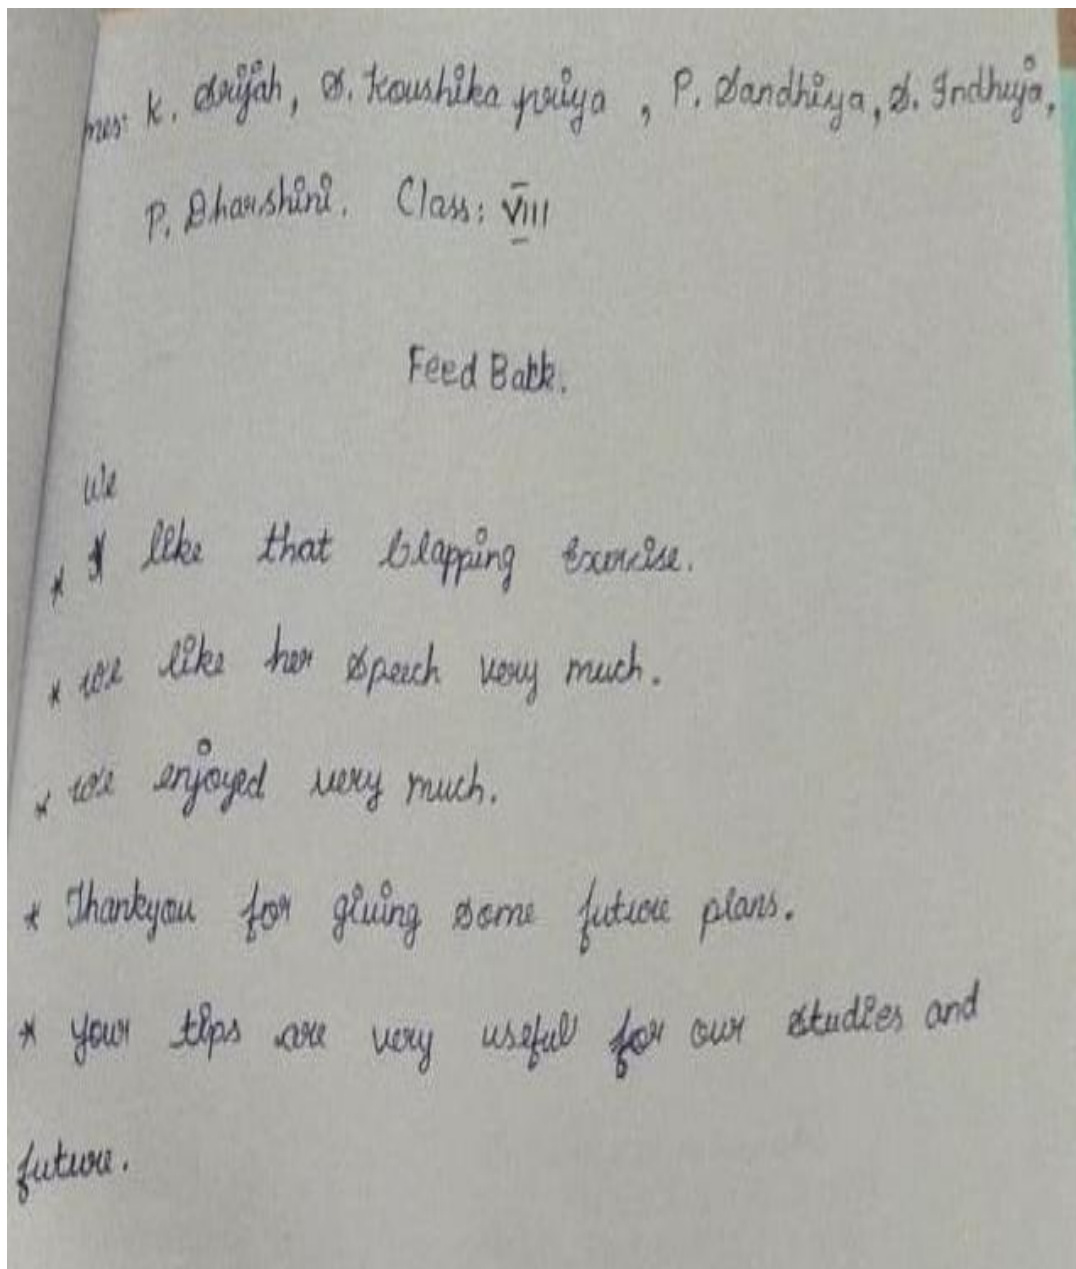 mes: K. Srijah, S. Koushika priya, P. Sandhiya, S. Indhuja,
P. Dharshini. Class: VIII
Feed Back.
we
* like that clapping Exercise.
* we like her speech very much.
* we enjoyed very much.
* Thankyou for giving some future plans.
* your tips are very useful for our studies and
future.